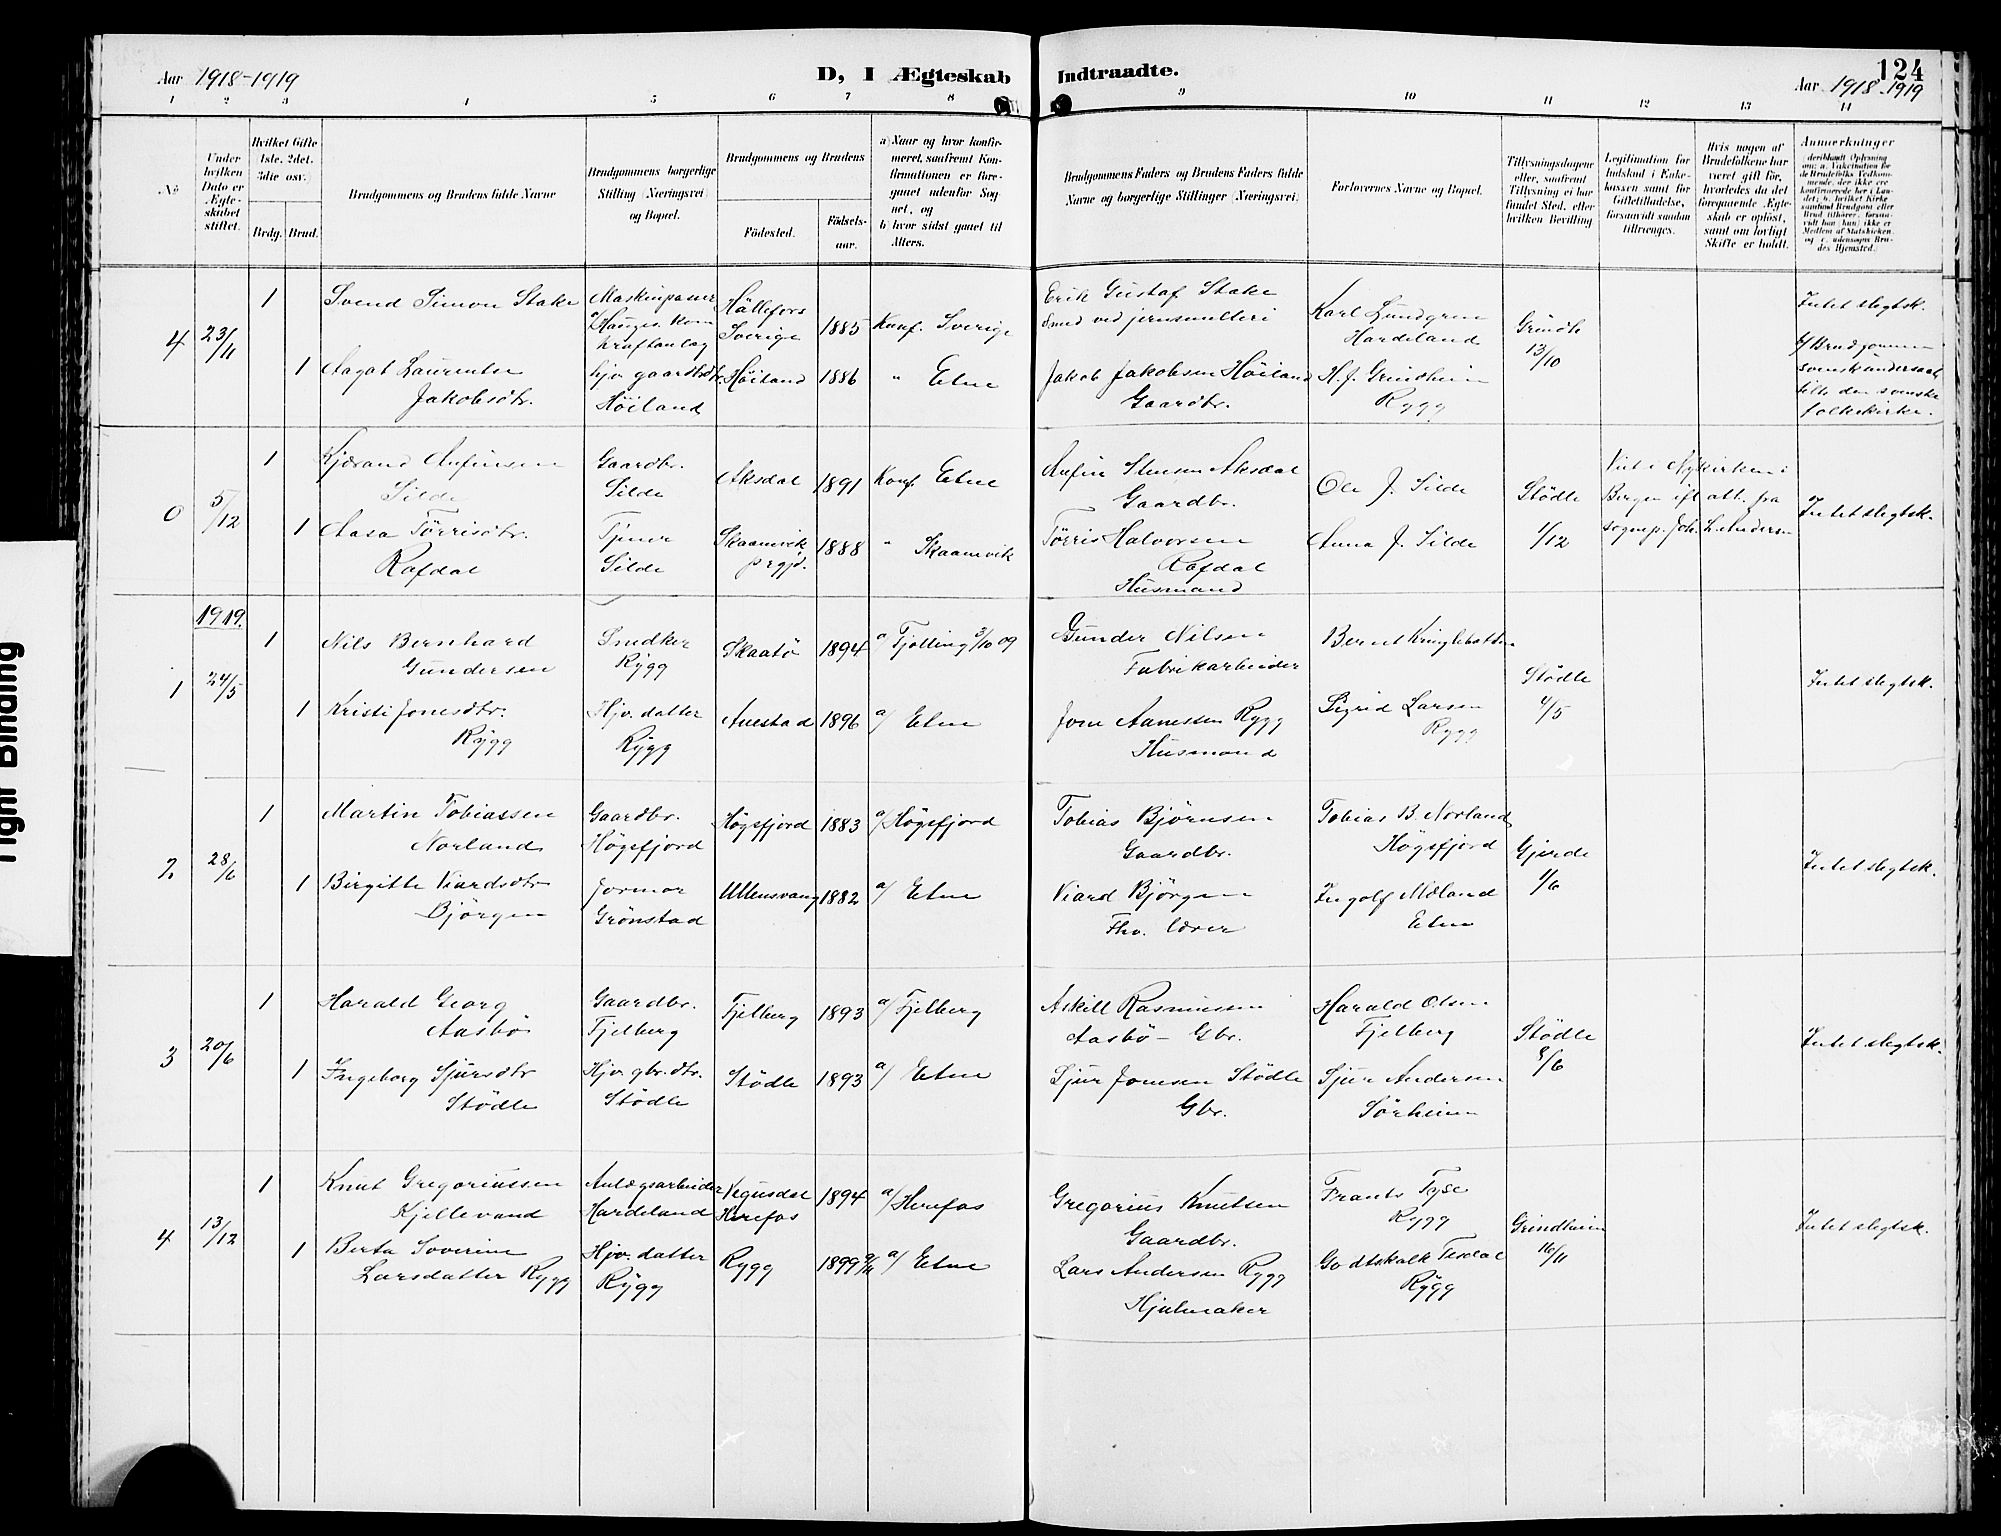 124
Aar 1918-1919
D, I Ægteskab Indtraadte.
Aar 1918-1919
1 2 3 4 5 6 7 8 9 10 11 12 13 14
No
Under hvilken Dato er Ægteskabet stiftet.
Hvilket Gifte 1ste. 2det. 3die osv.)
Brdg. Brud.
Brudgommens og Brudens fulde Navne
Brudgommens borgerlige Stilling (Næringsvei) og Bopæl.
Brudgommens og Brudens
Födested.
Födsels-aar.
a) Naar og hvor konfirmeret, saafremt Konfirmationen er foregaaet udenfor Sognet, og
b) hvor sidst gaaet til Alters.
Brudgommens Faders og Brudens Faders fulde Navne og borgerlige Stillinger (Næringsvei).
Forlovernes Navne og Bopæl.
Tillysningsdagene eller, saafremt Tillysning ei har fundet Sted, efter hvilken Bevilling
Legitimation for Indskud i Enkekassen samt for Giftetilladelse, forsaavidt saadan tiltrænges.
Hvis nogen af Brudefolkene har været gift før, hvorledes da det foregaaende Ægteskab er opløst, samt om lovligt Skifte er holdt.
Anmerkninger
4 23/11
1 Svend Simon Stake
Maskinpasser v/Hauges. kom kraftanlag
Hällefors Sverige 1885 Konf. Sverige
Erik Gustaf Stake
Smed ved jernsmelteri
Karl Lundgren
Hardeland
Grindh. 13/10
Intet slegtsk.
1 Aagot Laurentse
Jakobsdtr.
hjv. gaardbrdtr.
Höiland
Höiland 1886 " Etne
Jakob Jakobsen Höiland
Gaardbr.
H. J. Grindheim
Rygg
Brudgommen
svensk undersaat,
tilh. den svenske
folkekirke.
0 5/12
1 Kjærand Anfinsen
Silde
Gaardbr.
Silde
Aksdal 1891 Konf. Etne
Anfin Stensen Aksdal
Gaardbr.
Ole J. Silde
Stödle 1/12
Viet i Nykirken i
Bergen ifl. att. fra
sognep. Joh. L. Andersen
Intet slegtsk.
1 Aasa Törrisdtr.
Rafdal
Tjener
Silde
Skaanevik prgjd. 1888 " Skaanevik
Törris Halvorsen
Rafdal
Husmand
Anna J. Silde
1919.
1 24/5
1 Nils Bernhard
Gundersen
Snedker
Rygg
Skaatö 1894 a/ Tjölling 3/10 09
Gunder Nilsen
Fabrikarbeider
Bernt Kringlebotten
Stödle 4/5
Intet slegtsk.
1 Kristi Jonesdtr.
Rygg
Hjv. datter
Rygg
Anestad 1896 a/ Etne
Jone Aanessen Rygg
Husmand
Sigrid Larsen
Rygg
2. 28/6
1 Martin Tobiassen
Norland
Gaardbr.
Högsfjord
Högsfjord 1883 a/ Högsfjord
Tobias Björnsen
Gaardbr.
Tobias B. Norland
Högsfjord
Gjerde 1/6
Intet slegtsk.
1 Birgitte Viardsdtr
Björgen
Jormor
Grönstad
Ullensvang 1882 a/ Etne
Viard Björgen
Fhv. lærer
Ingolf Mæland
Etne
3 20/6
1 Harald Georg
Aasbö
Gaardbr.
Fjelberg
Fjelberg 1893 a/ Fjelberg
Askill Rasmussen
Aasbö - Gbr.
Harald Olsen
Fjelberg
Stödle 8/6
Intet slegtsk.
1 Ingeborg Sjursdtr
Stödle
Hjv. gbr.dtr.
Stödle
Stödle 1893 a/ Etne
Sjur Jonesen Stödle
Gbr.
Sjur Andersen
Sörheim
4 13/12
1 Knut Gregoriussen
Kjellevand
Anlægsarbeider
Hardeland
Vegusdal
Herefos 1894 a/ Herefos
Gregorius Knutsen
Gaardbr.
Frants Tyse
Rygg
Grindheim 16/11
Intet slegtsk.
1 Berta Soverine
Larsdatter Rygg
Hjv. datter
Rygg
Rygg 1899 9/11 a/ Etne
Lars Andersen Rygg
Hjulmaker
Godtskalk Tesdal
Rygg
Right Binding